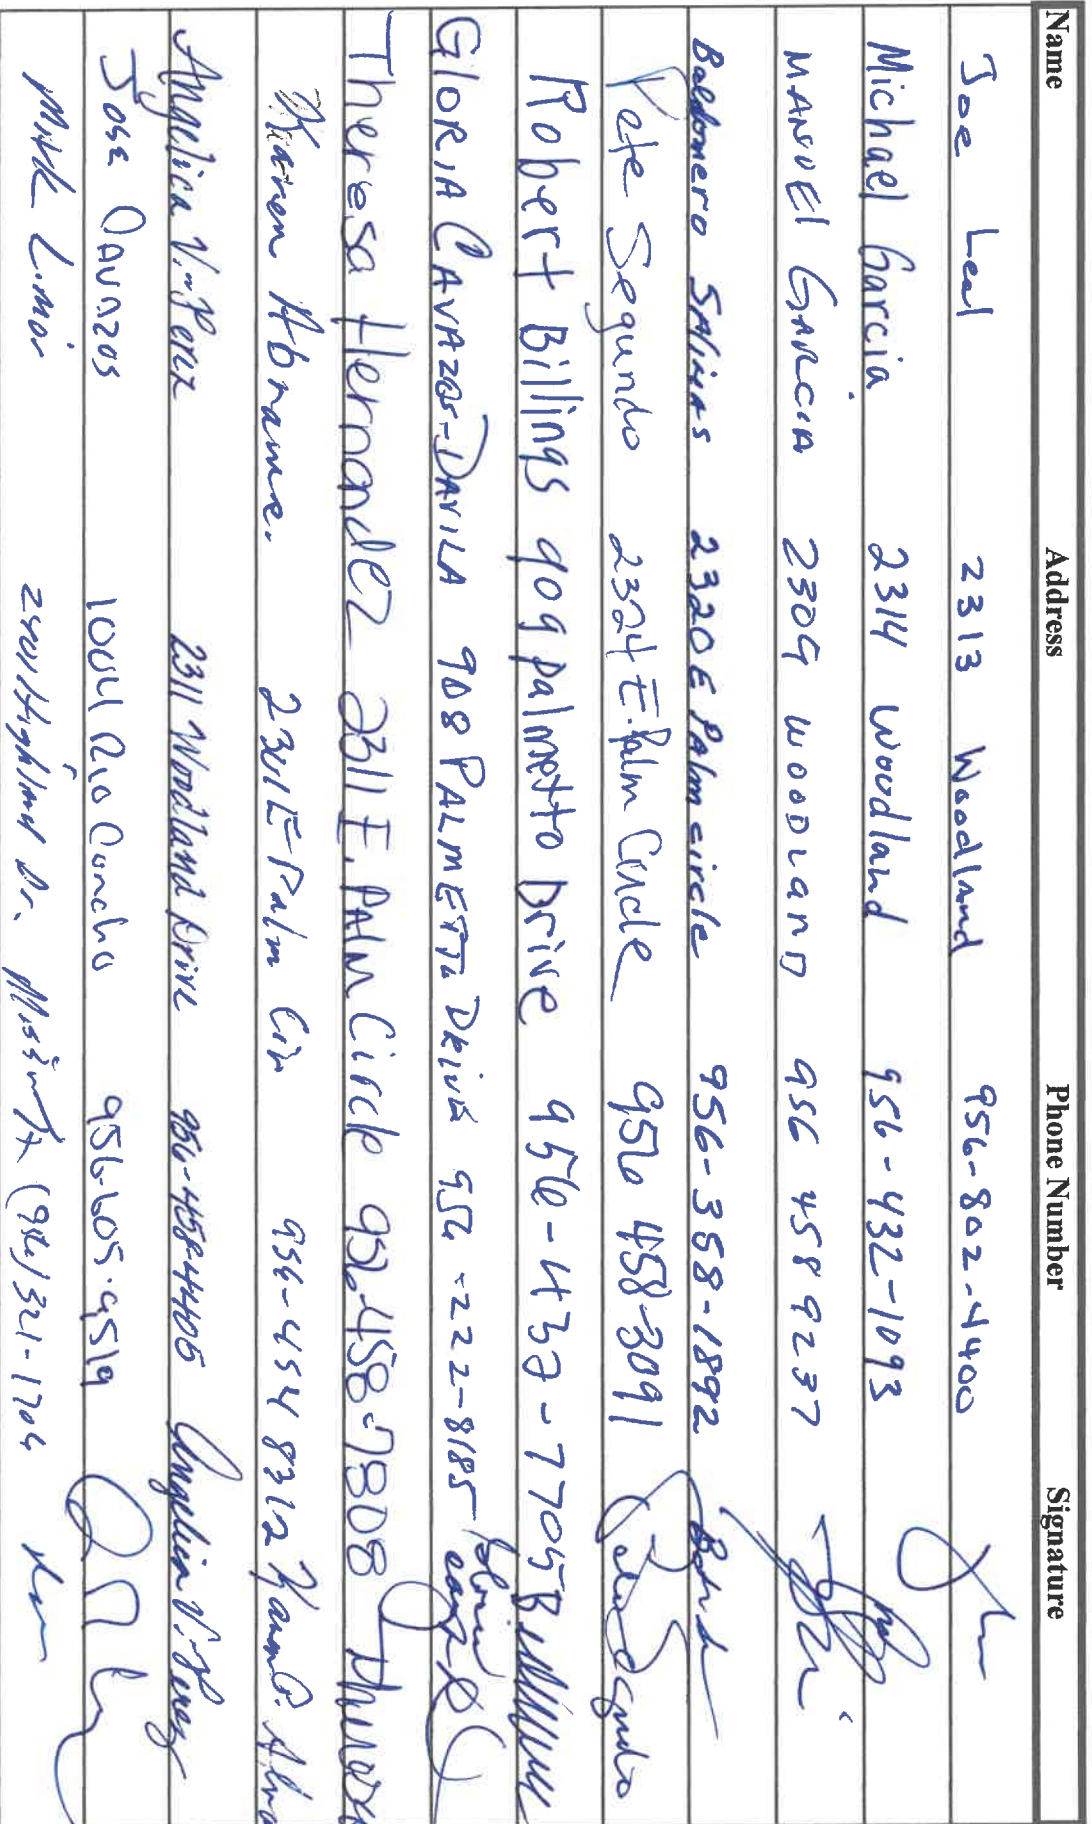 Name Address Phone Number Signature
Joe Leal 2313 Woodland 956-802-4400
Michael Garcia 2314 Woodland 956-432-1093
MANUEL GARCIA 2309 WOODLAND 956 458 9237
Baldomero SALINAS 2320 E Palm circle 956-358-1892
Pete Segundo 2324 E. Palm Circle 956 458-3091 Pete Segundo
Robert Billings 909 palmetto Drive 956-437-7705
GLORIA CAVAZOS-DAVILA 908 PALMETTO DRIVE 956-222-8185 Gloria
Theresa Hernandez 2311 E. PAlm Circle 956-458-7808
Karen 2301 E Palm Cir 956-454 8312 Karen
Angelica V. Perez 2311 Woodland Drive 956-458-4405 Angelica V. Perez
Jose Cavazos 1004 Rio Concho 956-605-9519
Highland Dr. (956) 321-1704